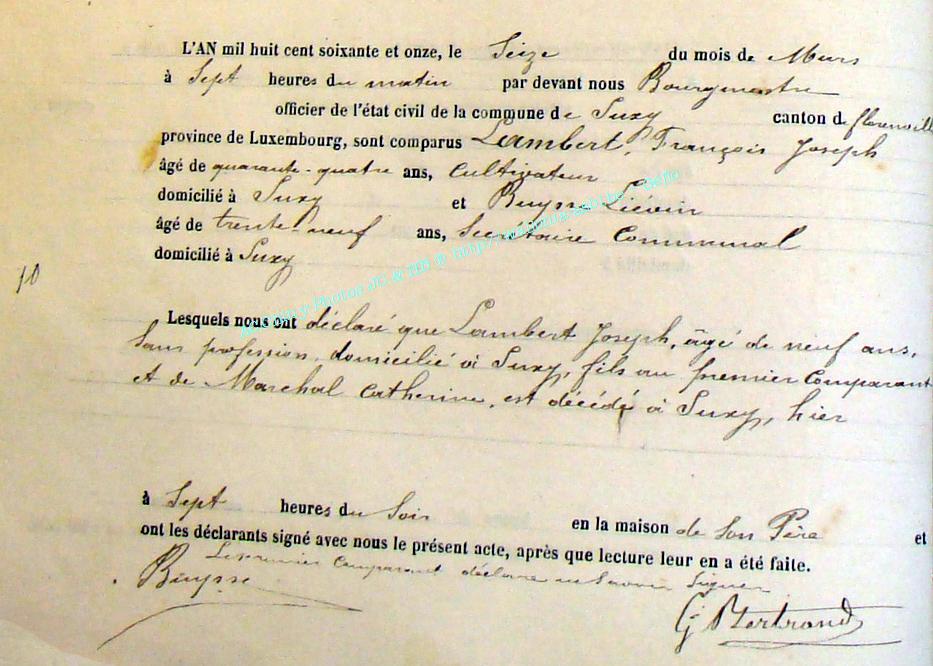 L'AN mil huit cent soixante et onze, le Seize du mois de Mars
à Sept heures du matin par devant nous Bourgmestre
officier de l'état civil de la commune de Suxy canton de florenville
province de Luxembourg, sont comparus Lambert, François Joseph
âgé de quarante-quatre ans, Cultivateur
domicilié à Suxy et Buysse Liévin
âgé de trente-neuf ans, Secrétaire Communal
domicilié à Suxy
10
Lesquels nous ont déclaré que Lambert Joseph, âgé de neuf ans,
Sans profession, domicilié à Suxy, fils au premier Comparant
et de Marchal Catherine, est décédé à Suxy, hier
à Sept heures du Soir en la maison de Son Père et
ont les déclarants signé avec nous le présent acte, après que lecture leur en a été faite.
Le premier Comparant déclare ne Savoir Signer
Buysse
G Bertrand